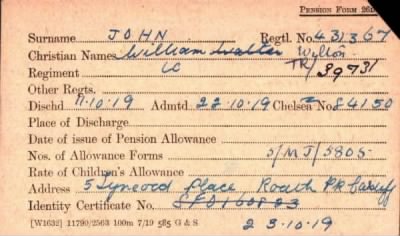 PENSION FORM 26D
Surname JOHN Regtl. No. 431367
Christian Names William Walter Wilton TR/39731
Regiment LC
Other Regts.
Dischd 11.10.19 Admtd 22.10.19 Chelsea No 84150
Place of Discharge
Date of issue of Pension Allowance
Nos. of Allowance Forms 5/MJ/5805
Rate of Children's Allowance
Address 5 Place, Roath Pk Cardiff
Identity Certificate No.
[W1632] 11790/2563 100m 7/19 585 G & S 23.10.19